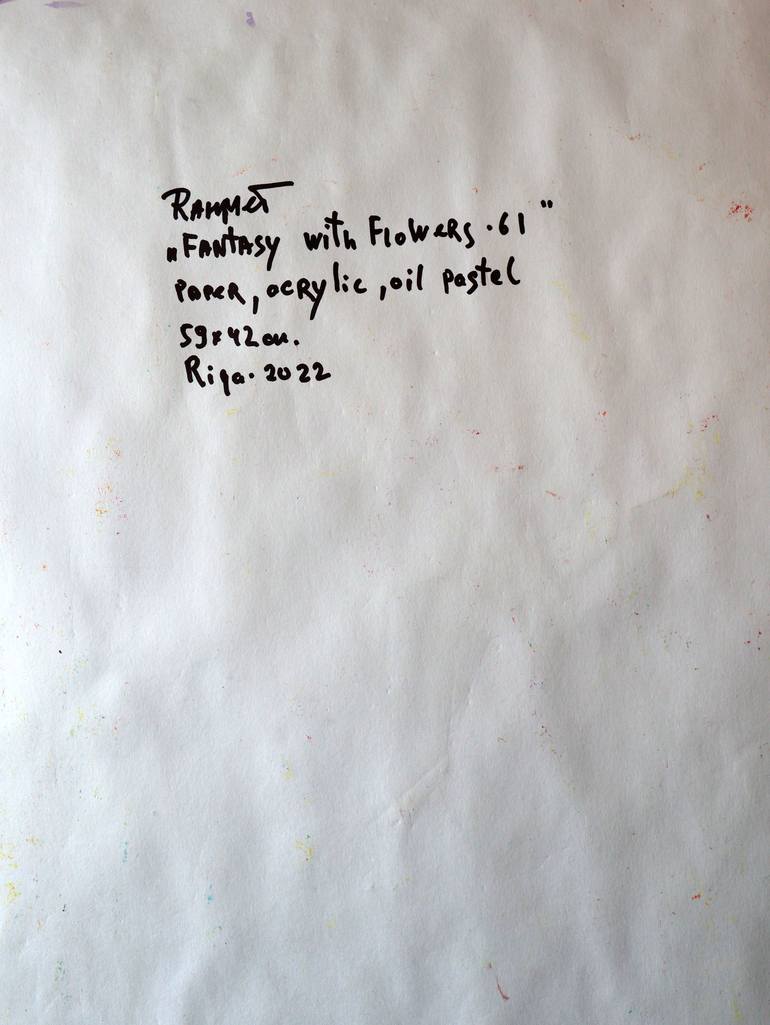 Rahmet
„Fantasy with Flowers · 61"
paper, acrylic, oil pastel
59x42cm.
Riga. 2022